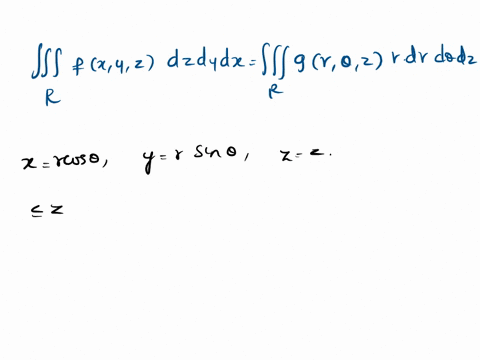 ∭_R f(x,y,z) dzdydx = ∭_R g(r,θ,z) r dr dθ dz
x = rcosθ, y = r sinθ, z = z.
≤ z